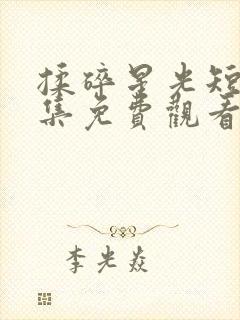 揉碎星光短
集免費觀看
李光焱